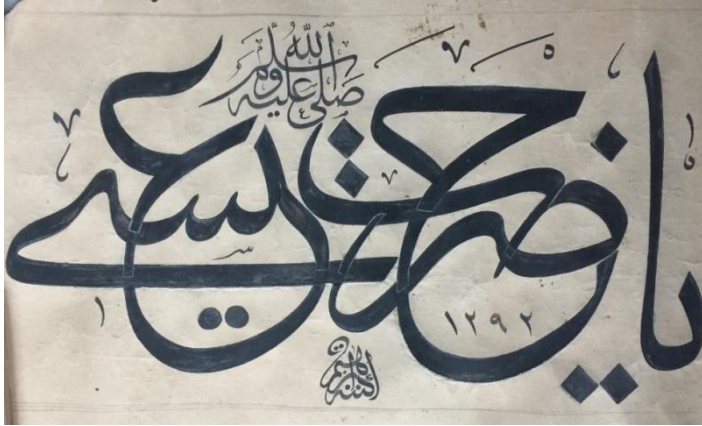 يا حضرت عيسى
صلى الله عليه وسلم
١٢٩٢